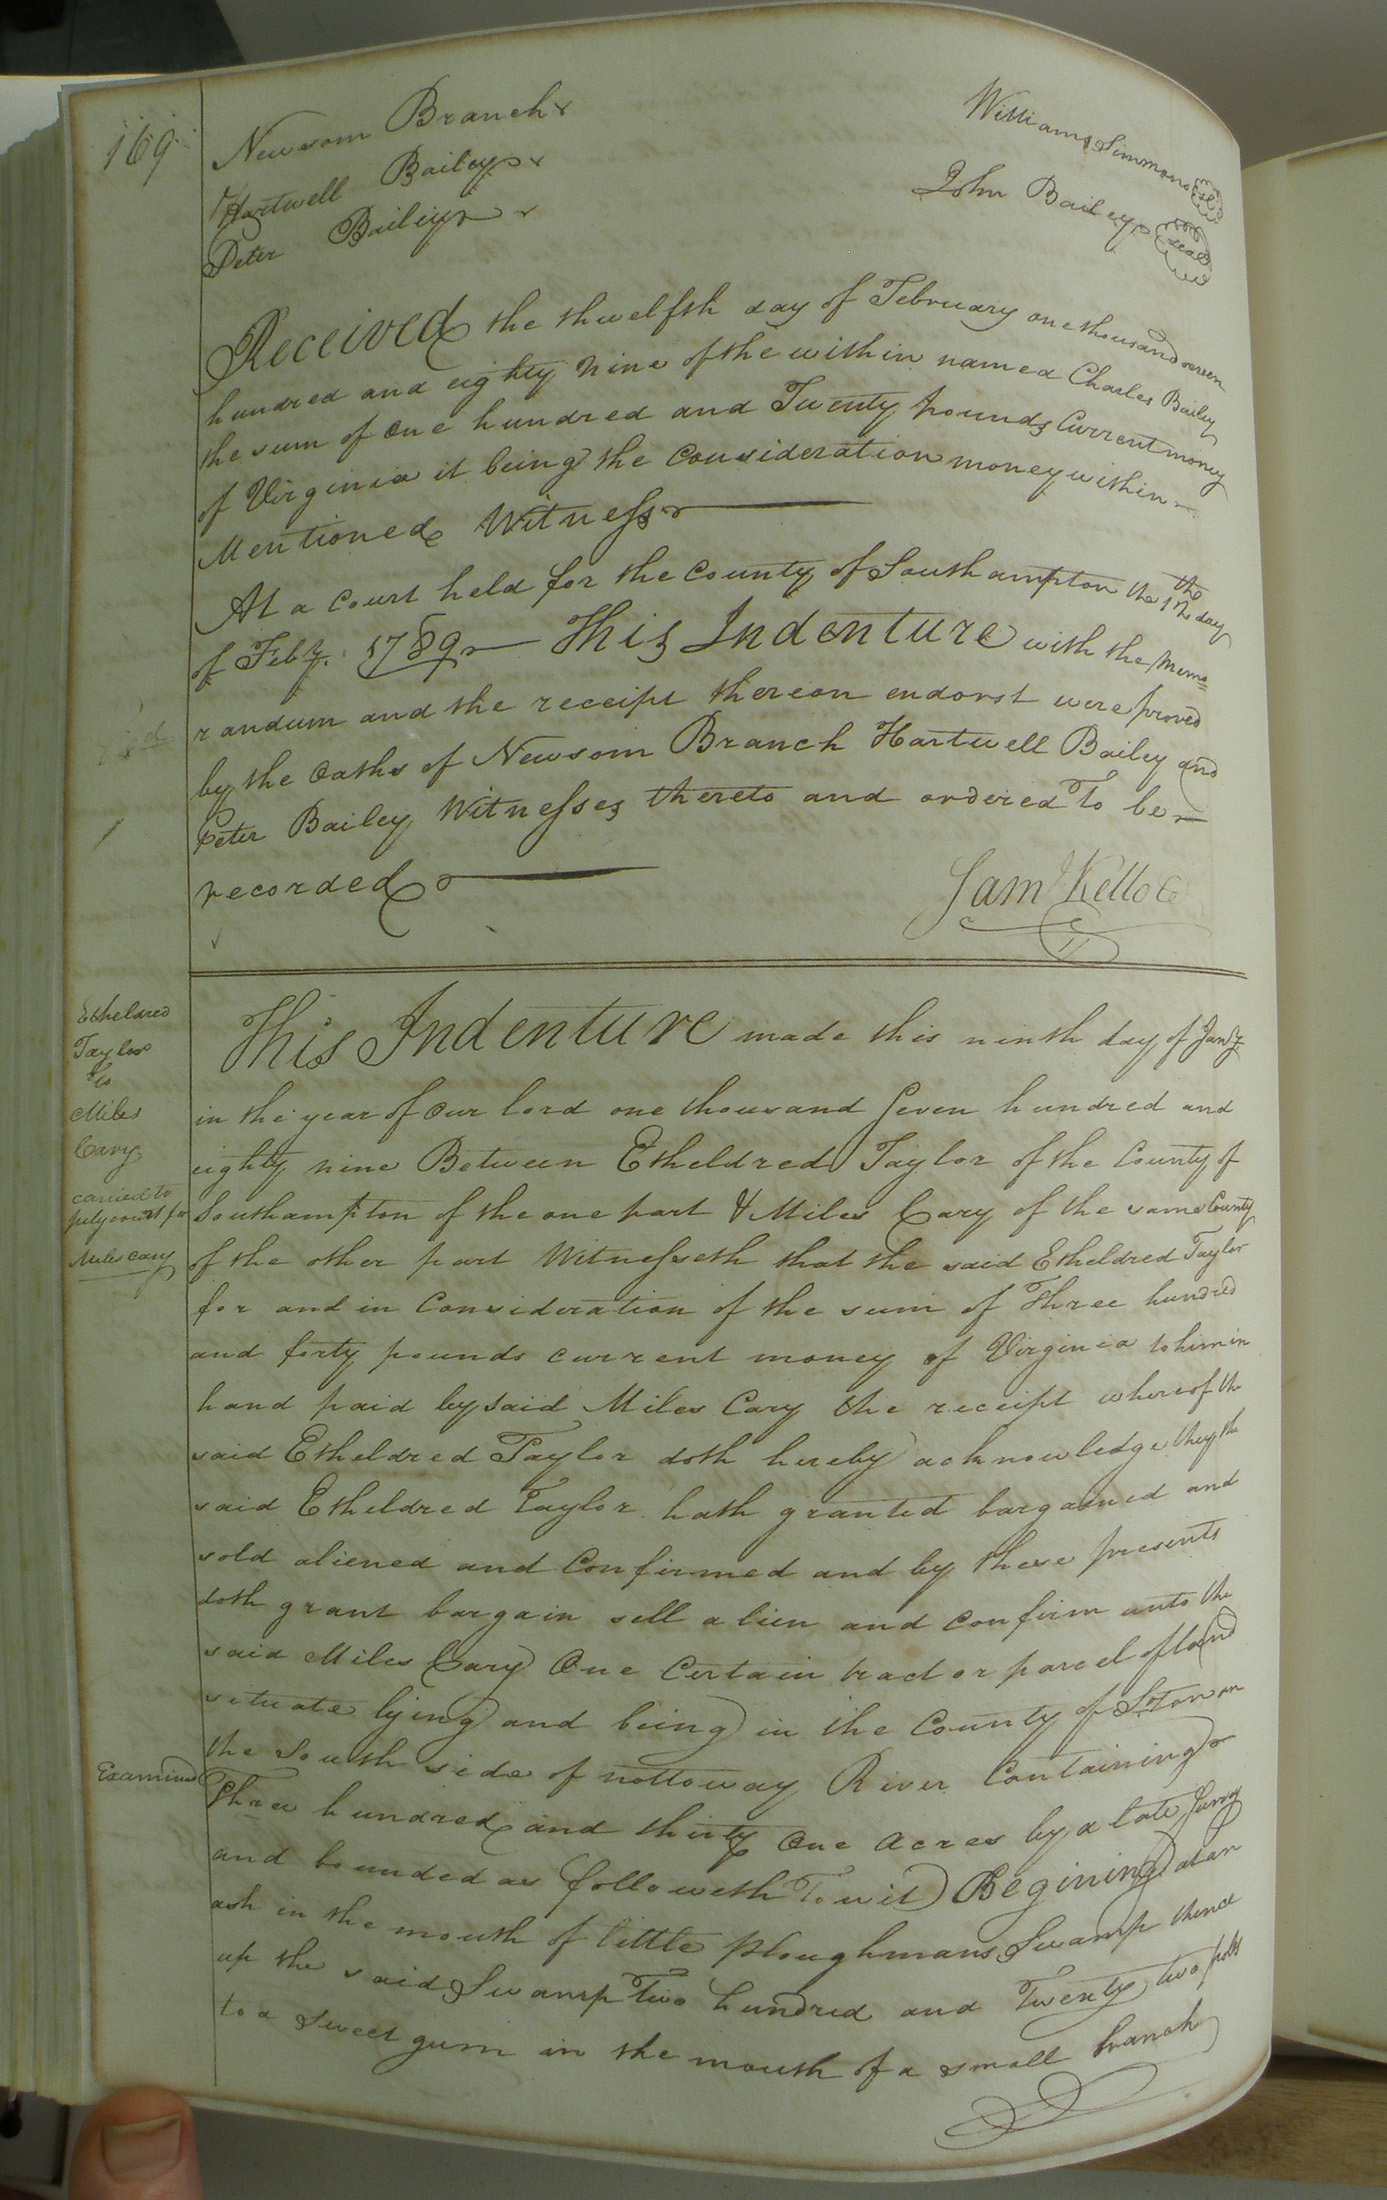 169
Newsom Branch
Hartwell Bailey
Peter Bailey
Williams Simmons
John Bailey seal
Received the thwelfth day of February one thousand seven
hundred and eighty nine of the within named Charles Bailey
the sum of one hundred and Twenty pounds Current money
of Virginia it being the Consideration money within
Mentioned Witness
At a Court held for the County of Southampton the 12th day
of Feby. 1789 This Indenture with the Memo=
randum and the receipt thereon endorst were proved
by the oaths of Newsom Branch Hartwell Bailey and
Peter Bailey Witnesses thereto and ordered To be
recorded
Saml Kello C
Etheldred
Taylor
to
Miles
Cary
carried to
July court for
Miles Cary
This Indenture made this ninth day of Jany
in the year of our lord one thousand Seven hundred and
eighty nine Between Etheldred Taylor of the County of
Southampton of the one part & Miles Cary of the same County
of the other part Witnesseth that the said Etheldred Taylor
for and in Consideration of the sum of Three hundred
and forty pounds current money of Virginia to him in
hand paid by said Miles Cary the receipt whereof the
said Etheldred Taylor doth hereby acknowledge they the
said Etheldred Taylor hath granted bargained and
sold aliened and Confirmed and by these presents
doth grant bargain sell alien and Confirm unto the
said Miles Cary One Certain tract or parcel of land
situate lying and being in the County of S.ton on
the South side of nottoway River Containing
Examined
Three hundred and thirty One acres by a late Survy
and bounded as followeth To wit Begining at an
ash in the mouth of little Ploughmans Swamp thence
up the said Swamp Two hundred and Twenty two poles
to a Sweet gum in the mouth of a small branch